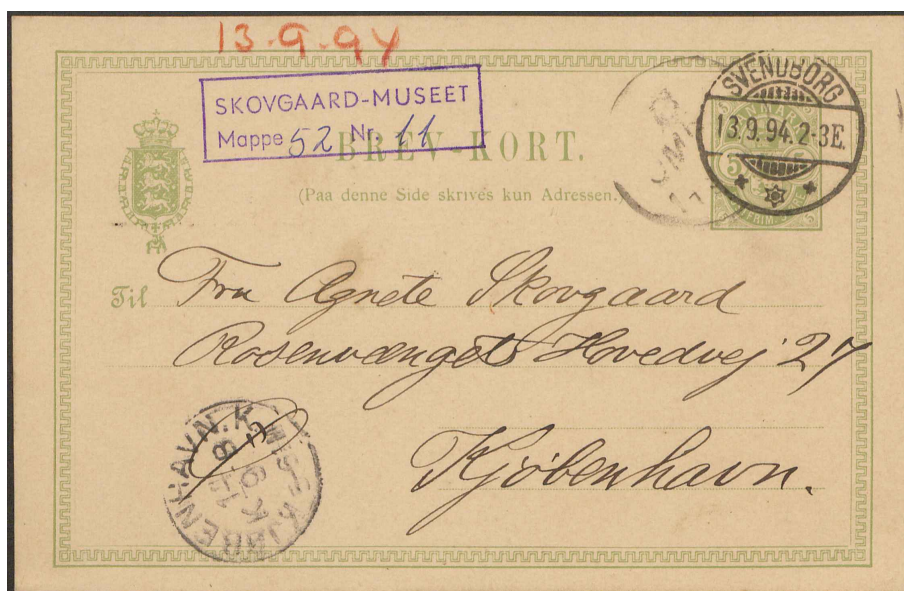 13.9.94
SKOVGAARD-MUSEET
Mappe 52 Nr. 11
BREV-KORT.
(Paa denne Side skrives kun Adressen.)
SVENDBORG
13.9.94.2-3E.
Til Fru Agnete Skovgaard
Rosenvængets Hovedvej 27
Kjøbenhavn.
KJØBENHAVN.K.